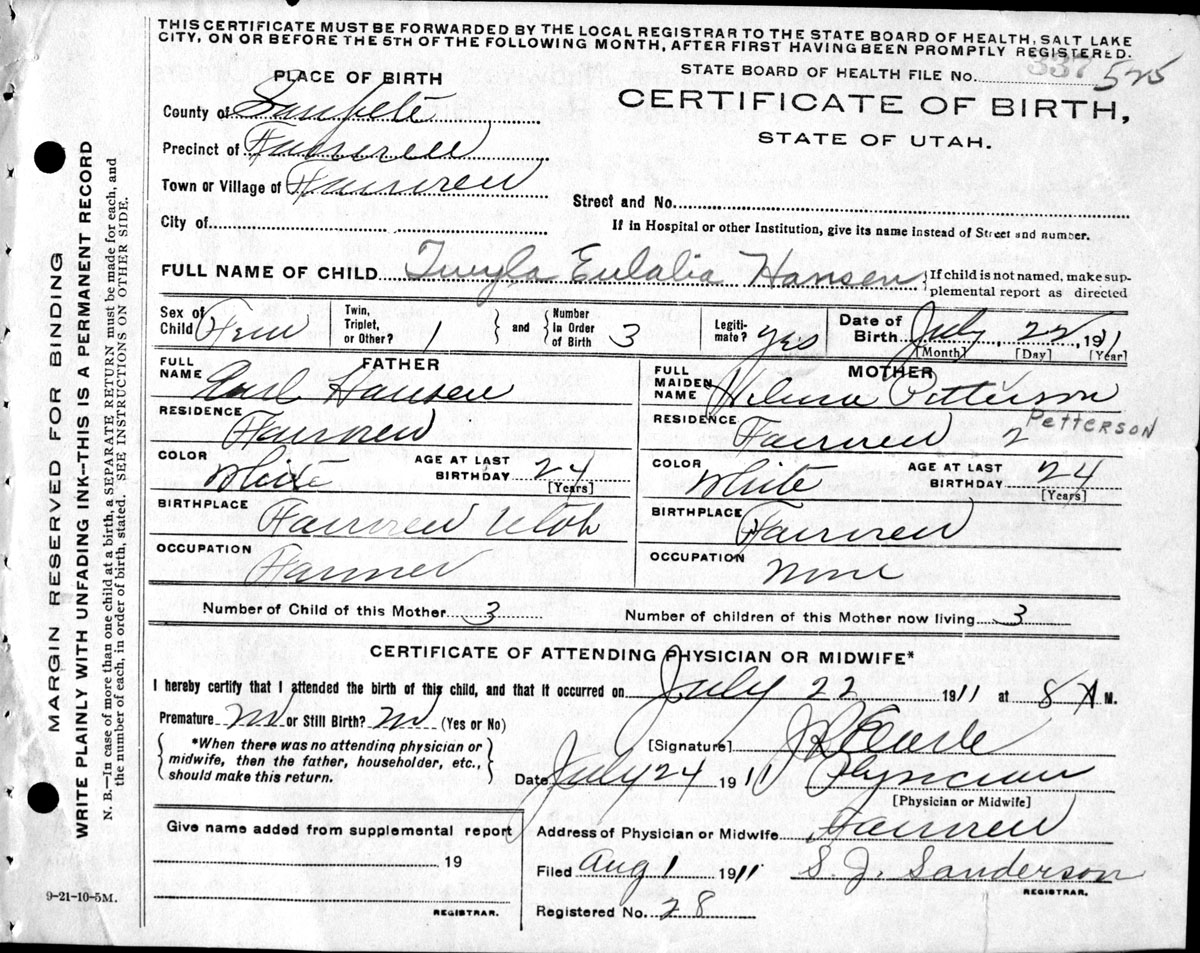 THIS CERTIFICATE MUST BE FORWARDED BY THE LOCAL REGISTRAR TO THE STATE BOARD OF HEALTH, SALT LAKE
CITY, ON OR BEFORE THE 5TH OF THE FOLLOWING MONTH, AFTER FIRST HAVING BEEN PROMPTLY REGISTERED.
PLACE OF BIRTH
STATE BOARD OF HEALTH FILE No. 337 525
County of Sanpete
CERTIFICATE OF BIRTH,
STATE OF UTAH.
Precinct of Fairview
Town or Village of Fairview
Street and No.
City of
If in Hospital or other Institution, give its name instead of Street and number.
FULL NAME OF CHILD Twyla Eulalia Hansen { If child is not named, make sup-
plemental report as directed
Sex of Child Fem
Twin, Triplet, or Other? 1 } and { Number in Order of Birth 3
Legiti-mate? yes
Date of Birth July, 22, 1911
[Month] [Day] [Year]
FATHER
FULL NAME Earl Hansen
RESIDENCE Fairview
COLOR White AGE AT LAST BIRTHDAY 24
[Years]
BIRTHPLACE Fairview Utah
OCCUPATION Farmer
MOTHER
FULL MAIDEN NAME Petterson
PETTERSON
RESIDENCE Fairview
COLOR White AGE AT LAST BIRTHDAY 24
[Years]
BIRTHPLACE Fairview
OCCUPATION None
Number of Child of this Mother 3 Number of children of this Mother now living 3
CERTIFICATE OF ATTENDING PHYSICIAN OR MIDWIFE*
I hereby certify that I attended the birth of this child, and that it occurred on July 22 1911 at 8 A M.
Premature No or Still Birth? No (Yes or No)
{ *When there was no attending physician or
midwife, then the father, householder, etc.,
should make this return. }
[Signature]
Date July 24 1911 Physician
[Physician or Midwife]
Give name added from supplemental report
19
REGISTRAR.
Address of Physician or Midwife Fairview
Filed Aug 1 1911 S. J. Sanderson
REGISTRAR.
Registered No. 28
9-21-10-5M.
MARGIN RESERVED FOR BINDING
WRITE PLAINLY WITH UNFADING INK--THIS IS A PERMANENT RECORD
N. B.—In case of more than one child at a birth, a SEPARATE RETURN must be made for each, and
the number of each, in order of birth, stated. SEE INSTRUCTIONS ON OTHER SIDE.